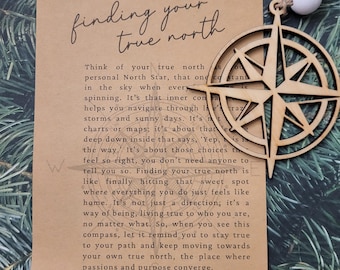 finding your
true north
Think of your true north
personal North Star, that one
in the sky when every
spinning. It's that inner
helps you navigate through
storms and sunny days. It's not
charts or maps; it's about that
deep down inside that says, 'Yep,
the way.' It's about those choices
feel so right, you don't need anyone to
tell you so. Finding your true north is
like finally hitting that sweet spot
where everything you do just feels like
home. It's not just a direction; it's a
way of being, living true to who you are,
no matter what. So, when you see this
compass, let it remind you to stay true
to your path and keep moving towards
your own true north, the place where
passions and purpose converge.